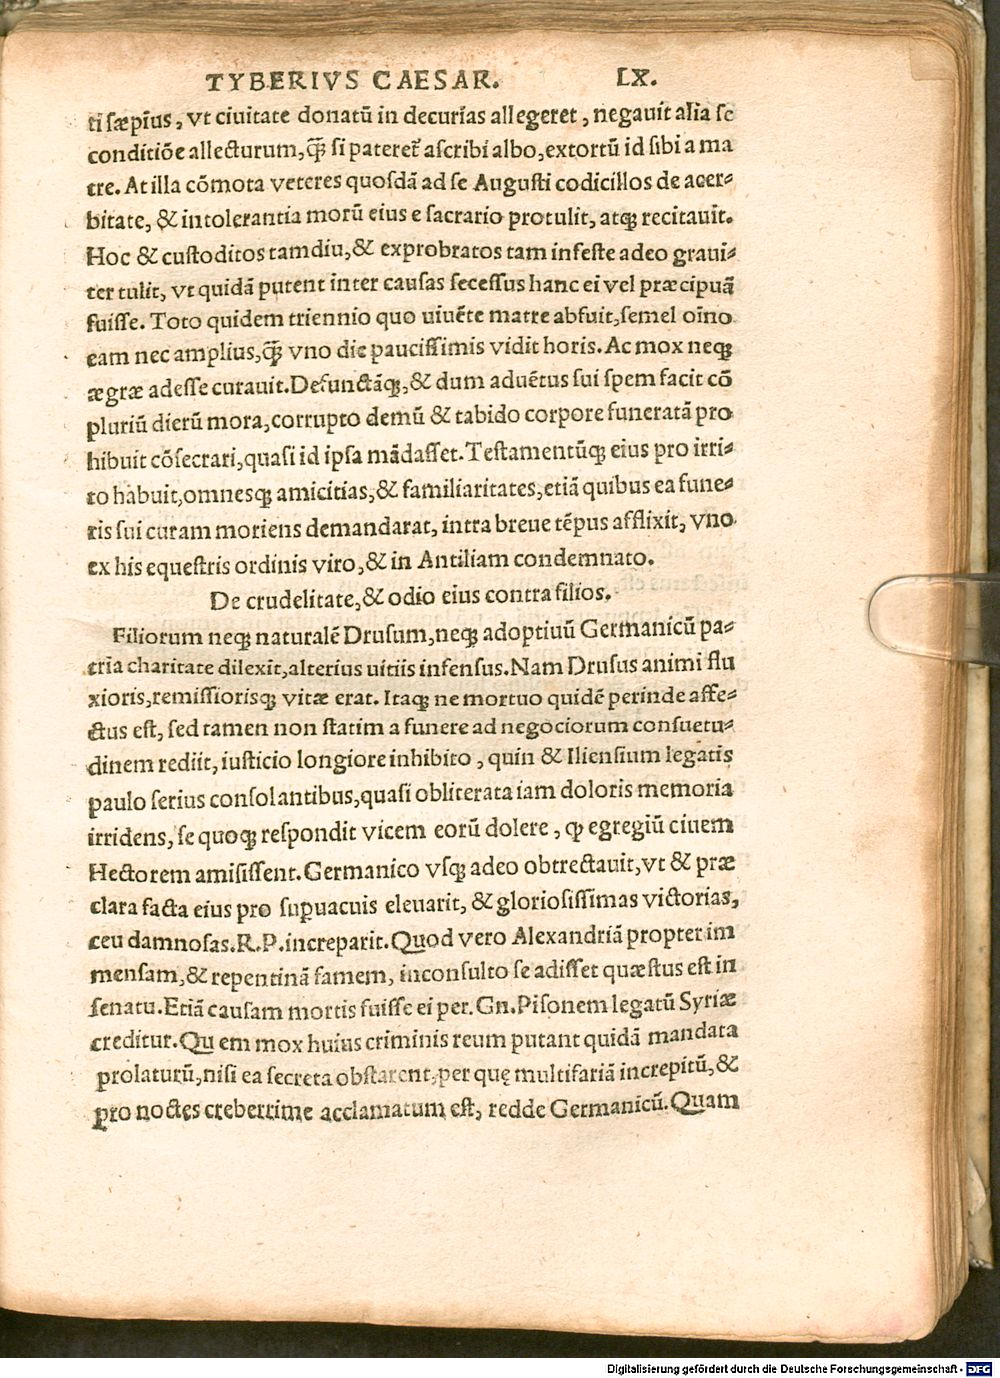 TYBERIVS CAESAR. LX.
ti sæpius, vt ciuitate donatū in decurias allegeret, negauit alia se
conditiōe allecturum, ꝙ̄ si pateret᷑ ascribi albo, extortū id sibi a ma
tre. At illa cōmota veteres quosdā ad se Augusti codicillos de acer⸗
bitate, & intolerantia morū eius e sacrario protulit, atqꝫ recitauit.
Hoc & custoditos tamdiu, & exprobratos tam infeste adeo graui⸗
ter tulit, vt quidā putent inter causas secessus hanc ei vel præcipuā
fuisse. Toto quidem triennio quo uiuēte matre abfuit, semel oīno
eam nec amplius, ꝙ̄ vno die paucissimis vidit horis. Ac mox neqꝫ
ægræ adesse curauit. Defunctāqꝫ, & dum aduētus sui spem facit cō
pluriū dierū mora, corrupto demū & tabido corpore funeratā pro
hibuit cōsecrari, quasi id ipsa mādasset. Testamentūqꝫ eius pro irri⸗
to habuit, omnesqꝫ amicitias, & familiaritates, etiā quibus ea fune⸗
ris sui curam moriens demandarat, intra breue tēpus afflixit, vno
ex his equestris ordinis viro, & in Antiliam condemnato.
De crudelitate, & odio eius contra filios.
Filiorum neqꝫ naturalē Drusum, neqꝫ adoptiuū Germanicū pa⸗
tria charitate dilexit, alterius uitiis infensus. Nam Drusus animi flu
xioris, remissiorisqꝫ vitæ erat. Itaqꝫ ne mortuo quidē perinde affe⸗
ctus est, sed tamen non statim a funere ad negociorum consuetu⸗
dinem rediit, iusticio longiore inhibito, quin & Iliensium legatis
paulo serius consolantibus, quasi obliterata iam doloris memoria
irridens, se quoqꝫ respondit vicem eorū dolere, ꝙ egregiū ciuem
Hectorem amisissent. Germanico vsqꝫ adeo obtrectauit, vt & præ
clara facta eius pro supuacuis eleuarit, & gloriosissimas victorias,
ceu damnosas. R. P. increparit. Quod vero Alexandriā propter im
mensam, & repentinā famem, inconsulto se adisset quæstus est in
senatu. Etiā causam mortis fuisse ei per. Gn. Pisonem legatū Syriæ
creditur. Qu em mox huius criminis reum putant quidā mandata
prolaturū, nisi ea secreta obstarent, per quę multifariā increpitū, &
pro noctes creberrime acclamatum est, redde Germanicū. Quam
Digitalisierung gefördert durch die Deutsche Forschungsgemeinschaft - DFG